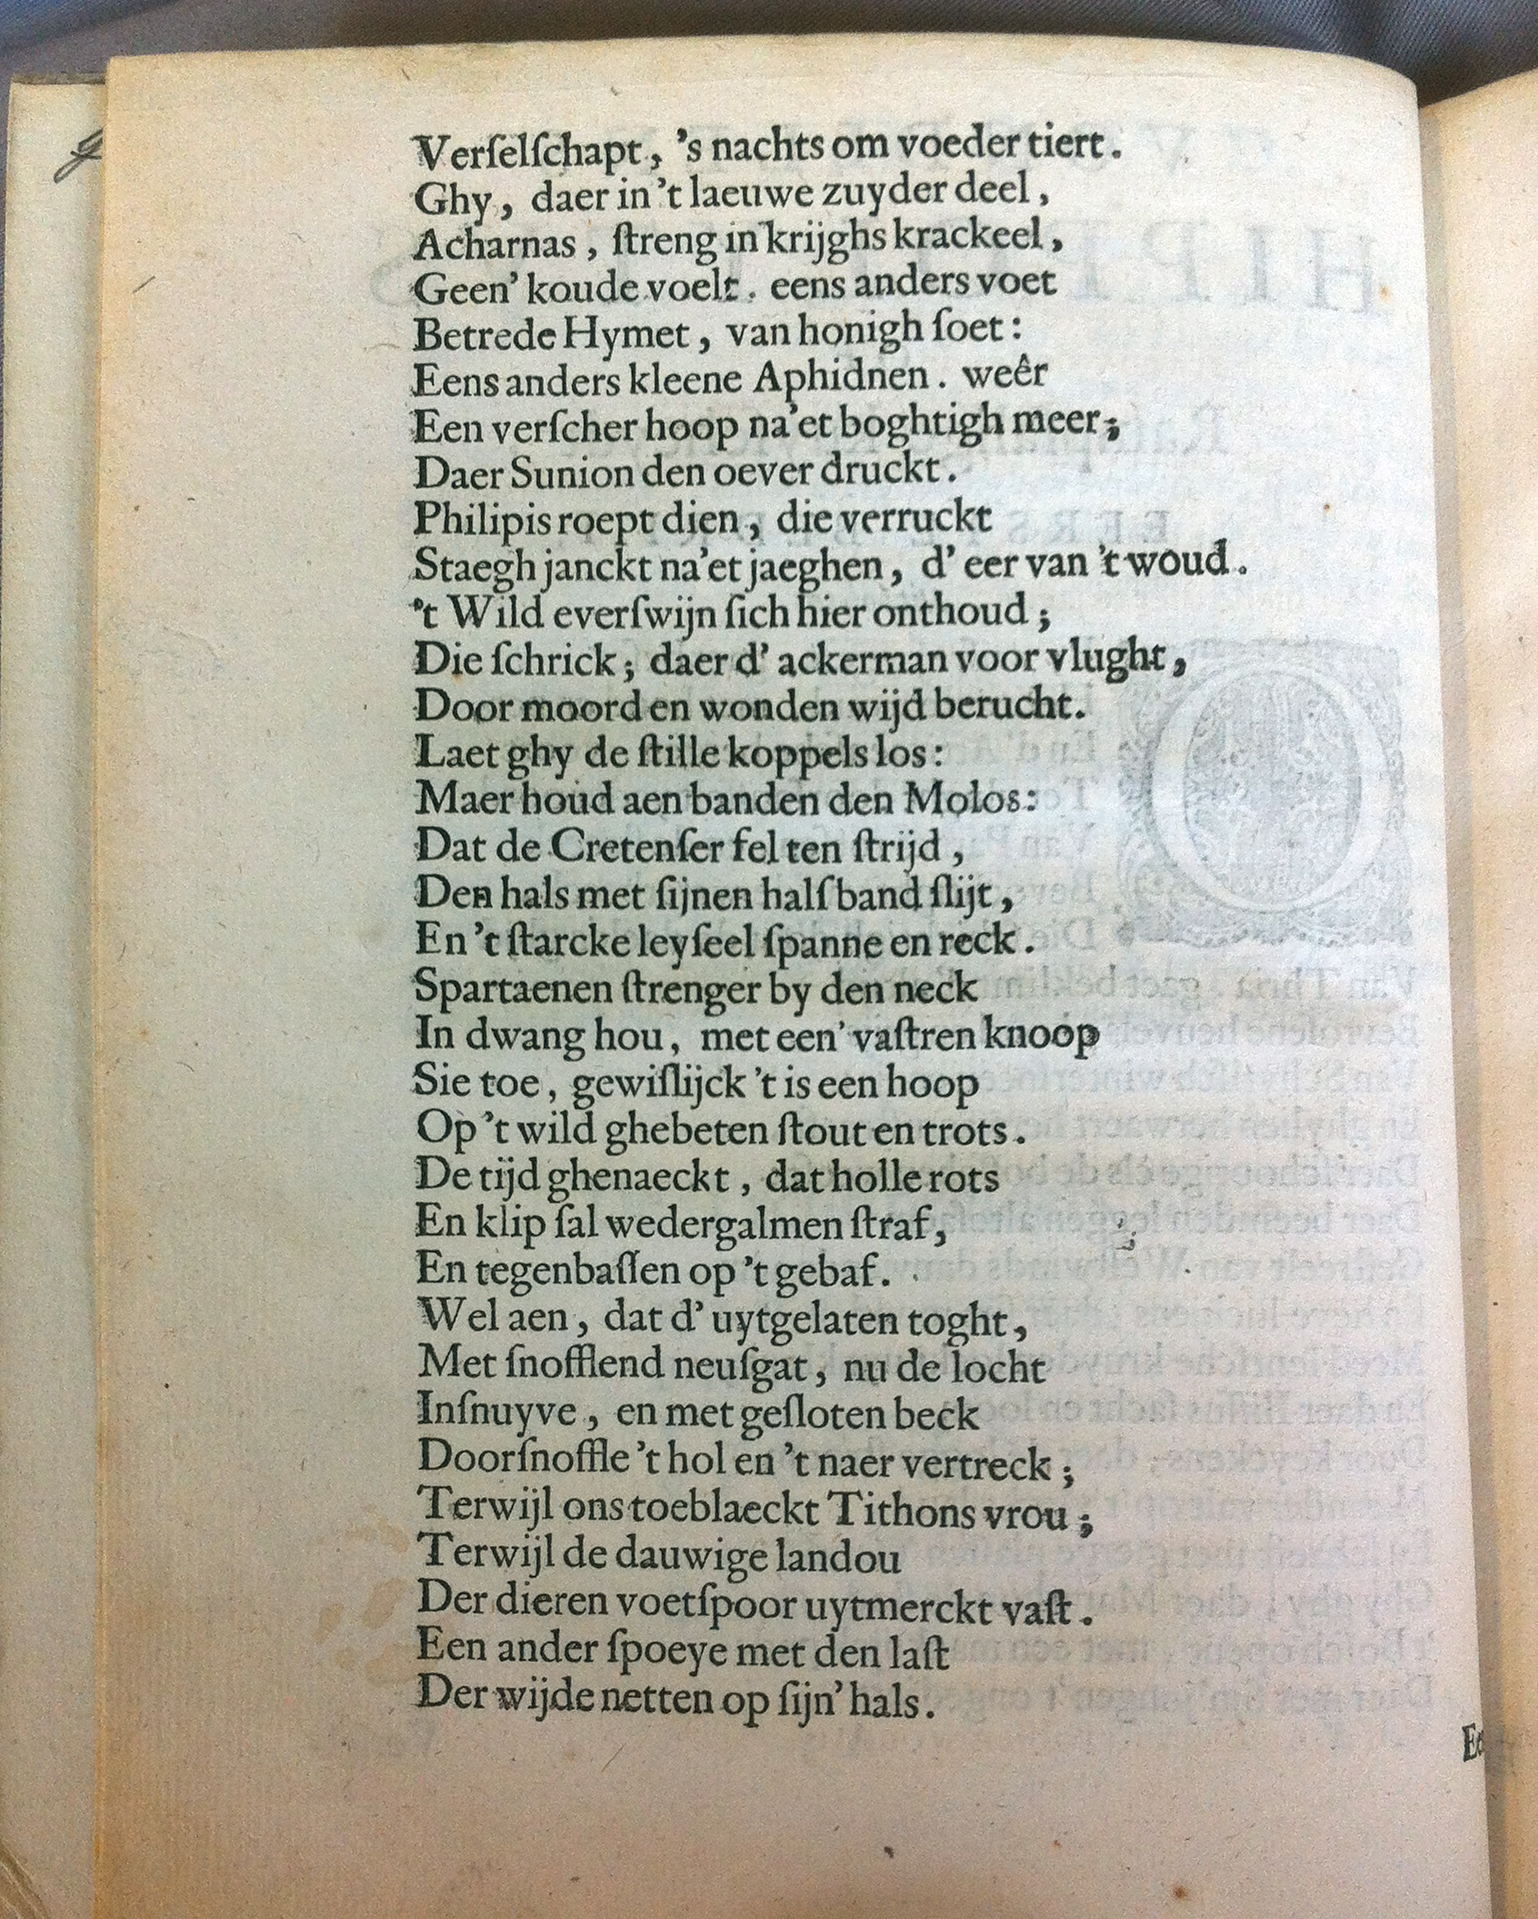 Verſelſchapt, 's nachts om voeder tiert.
Ghy, daer in 't laeuwe zuyder deel,
Acharnas, ſtreng in krijghs krackeel,
Geen' koude voelt. eens anders voet
Betrede Hymet, van honigh ſoet:
Eens anders kleene Aphidnen. weêr
Een verſcher hoop na'et boghtigh meer;
Daer Sunion den oever druckt.
Philipis roept dien, die verruckt
Staegh janckt na'et jaeghen, d' eer van 't woud.
't Wild everſwijn ſich hier onthoud;
Die ſchrick; daer d' ackerman voor vlught,
Door moord en wonden wijd berucht.
Laet ghy de ſtille koppels los:
Maer houd aen banden den Molos:
Dat de Cretenſer fel ten ſtrijd,
Den hals met ſijnen halſband ſlijt,
En 't ſtarcke leyſeel ſpanne en reck.
Spartaenen ſtrenger by den neck
In dwang hou, met een' vaſtren knoop
Sie toe, gewiſlijck 't is een hoop
Op 't wild ghebeten ſtout en trots.
De tijd ghenaeckt, dat holle rots
En klip ſal wedergalmen ſtraf,
En tegenbaſſen op 't gebaf.
Wel aen, dat d' uytgelaten toght,
Met ſnofflend neuſgat, nu de locht
Inſnuyve, en met geſloten beck
Doorſnoffle 't hol en 't naer vertreck;
Terwijl ons toeblaeckt Tithons vrou;
Terwijl de dauwige landou
Der dieren voetſpoor uytmerckt vaſt.
Een ander ſpoeye met den laſt
Der wijde netten op ſijn' hals.